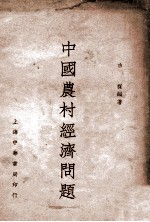 中國農村經濟問題
編著
上海中華書局印行